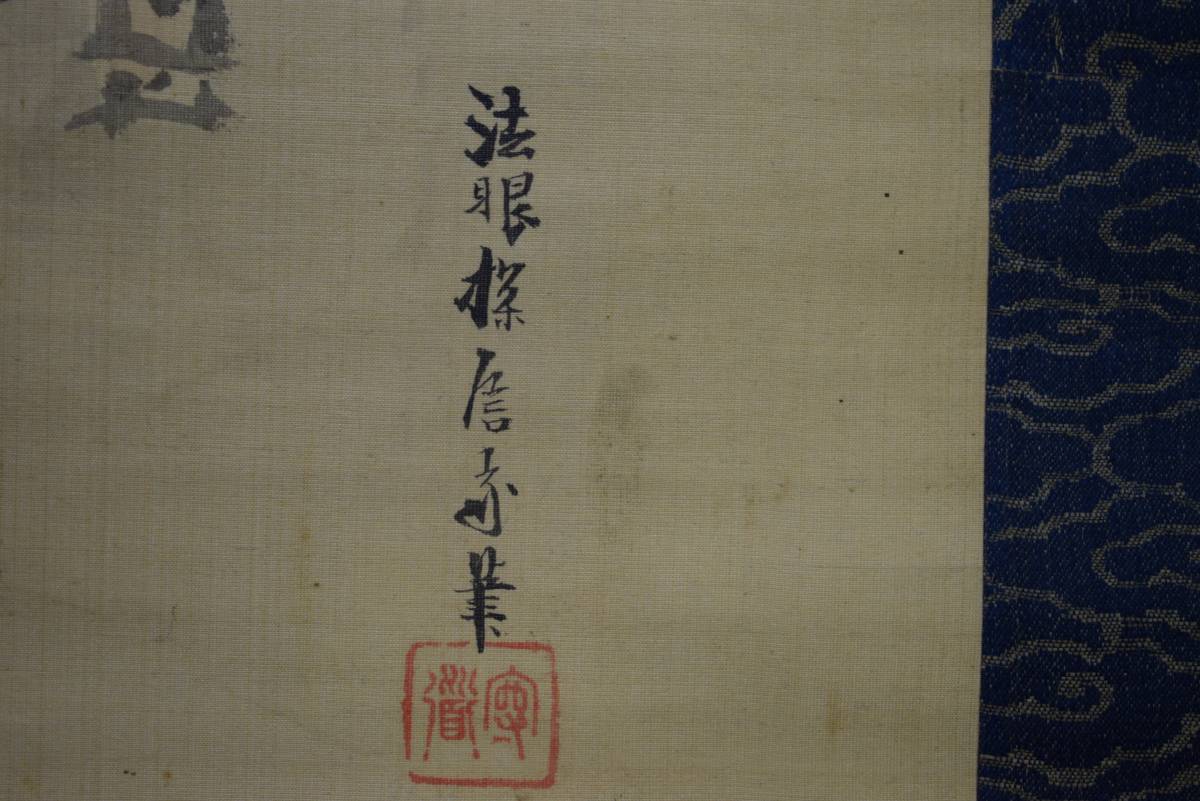 法眼探信斎筆
守道